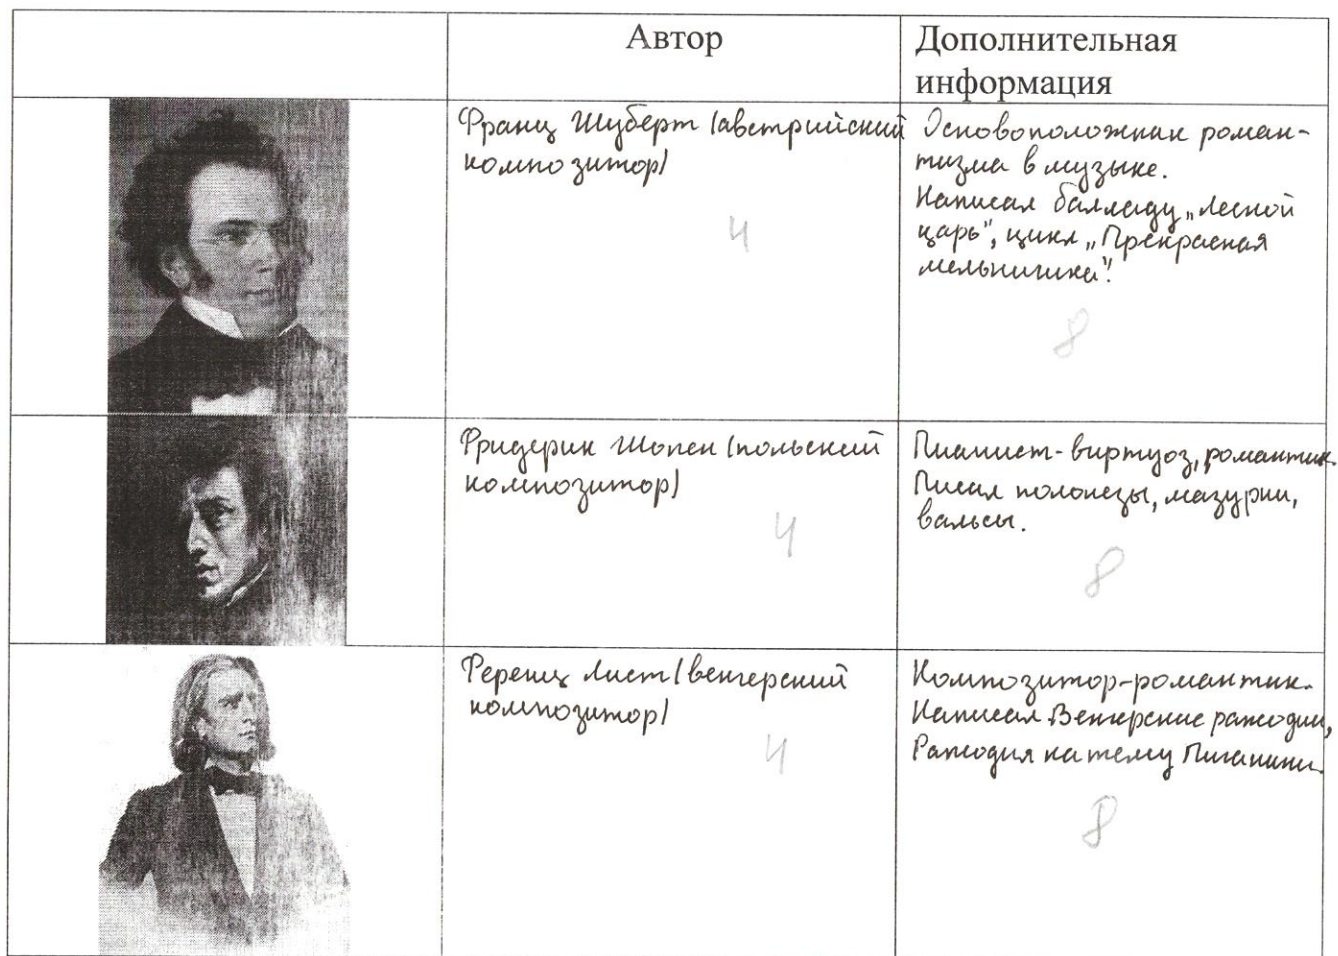 Автор
Дополнительная
информация
Франц Шуберт (австрийский
композитор)
4
Основоположник роман-
тизма в музыке.
Написал балладу „Лесной
царь", цикл „Прекрасная
мельничиха".
8
Фридерик Шопен (польский
композитор)
4
Пианист-виртуоз, романтик.
Писал полонезы, мазурки,
вальсы.
8
Ференц Лист (венгерский
композитор)
4
Композитор-романтик.
Написал Венгерские рапсодии,
Рапсодия на тему Паганини.
8